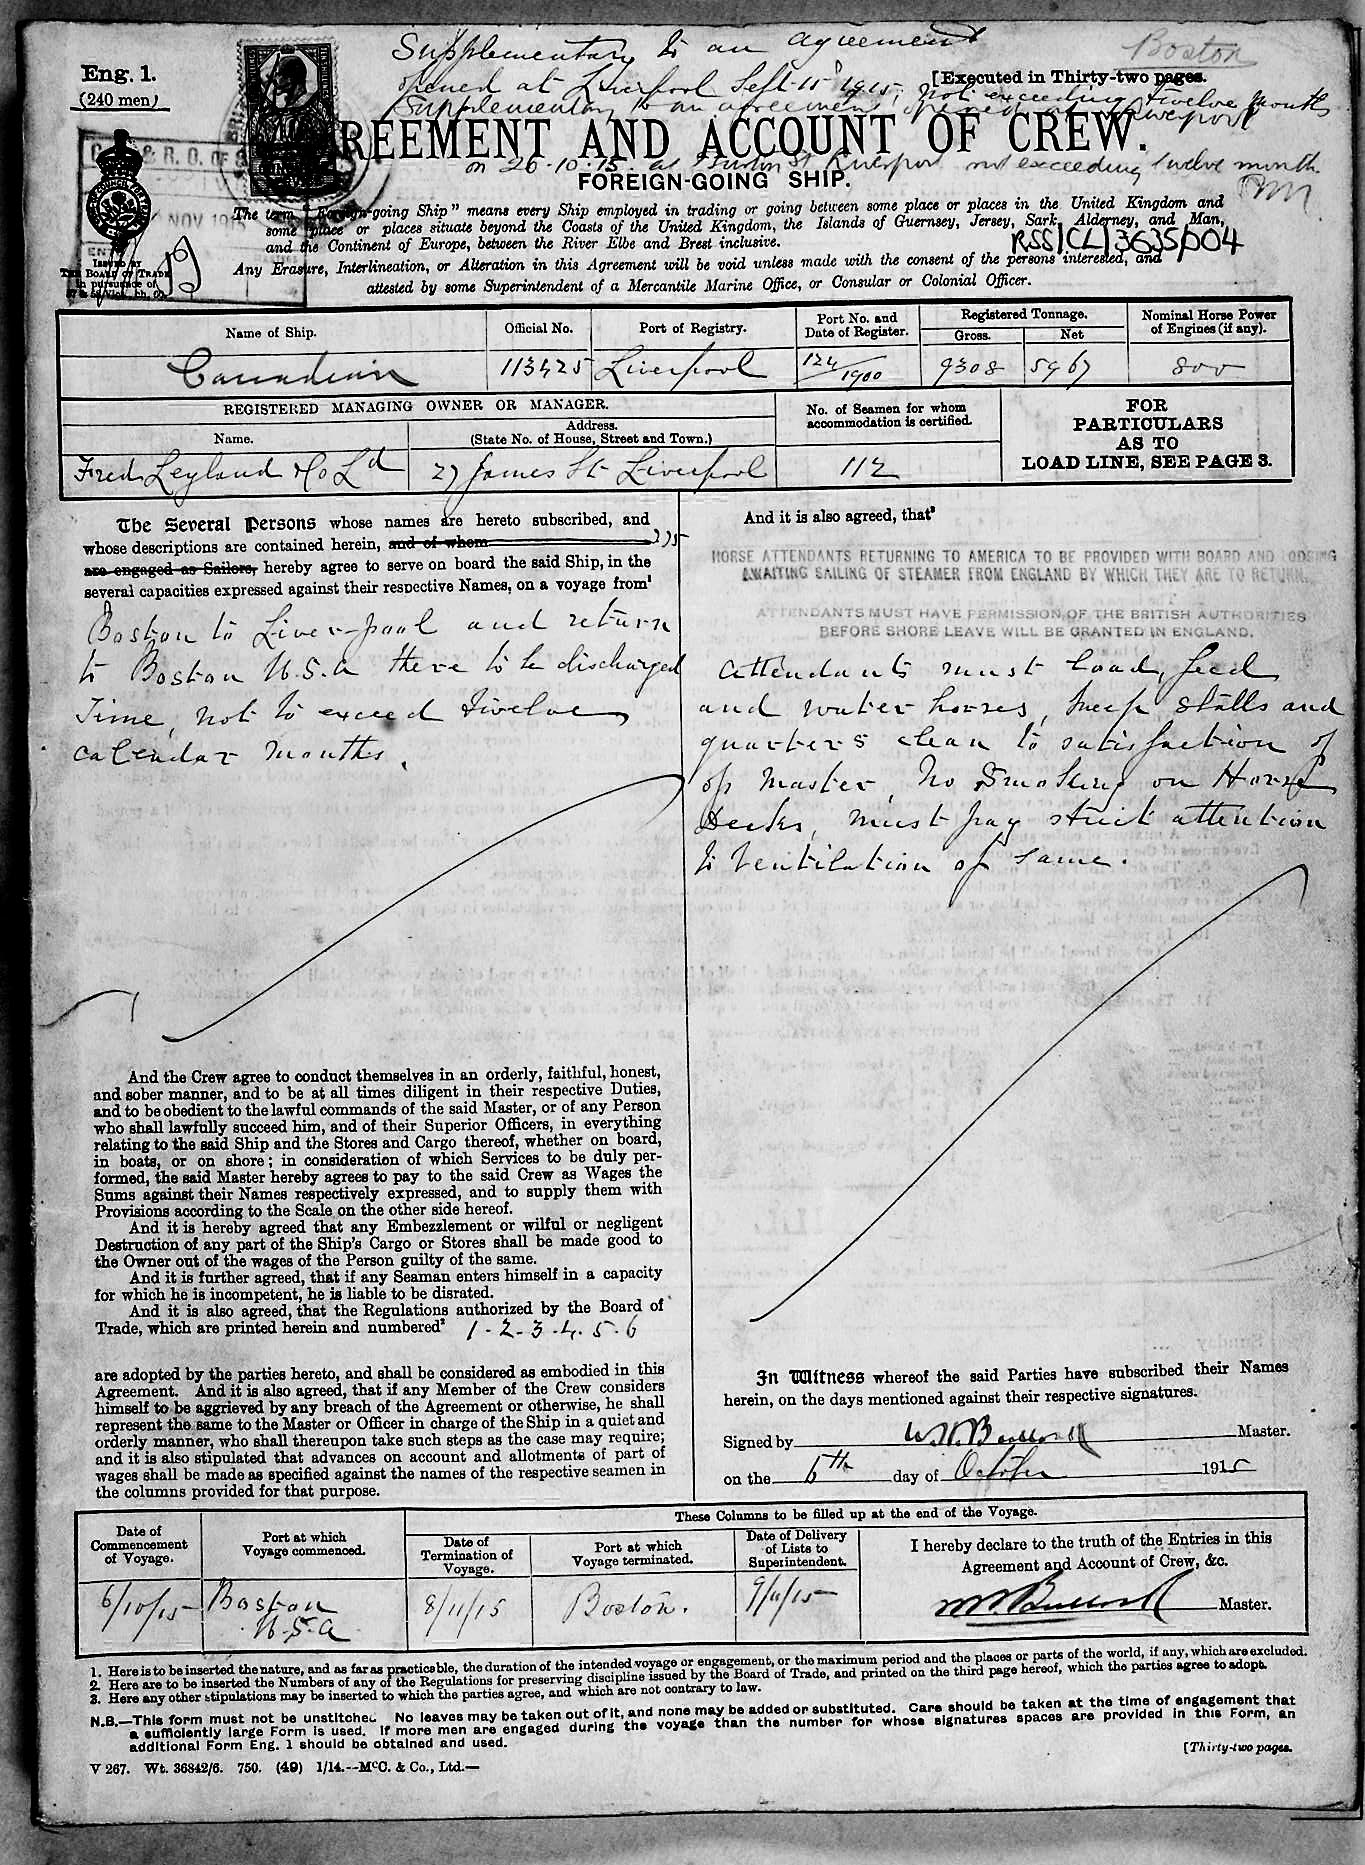 Supplementary to an agreement
Boston
Eng. 1.
(240 men)
opened at Liverpool Sept 15 1915, not exceeding twelve months
[Executed in Thirty-two pages.
Supplementary to an agreement opened at Liverpool
REEMENT AND ACCOUNT OF CREW.
on 26-10-15 at Liverpool not exceeding twelve month
FOREIGN-GOING SHIP.
& R. O. OF
NOV 1915
ISSUED BY
THE BOARD OF TRADE
in pursuance of
The term "Foreign-going Ship" means every Ship employed in trading or going between some place or places in the United Kingdom and
some place or places situate beyond the Coasts of the United Kingdom, the Islands of Guernsey, Jersey, Sark, Alderney, and Man,
and the Continent of Europe, between the River Elbe and Brest inclusive.
RSS/CL/3635/004
Any Erasure, Interlineation, or Alteration in this Agreement will be void unless made with the consent of the persons interested, and
attested by some Superintendent of a Mercantile Marine Office, or Consular or Colonial Officer.
Name of Ship. Official No. Port of Registry. Port No. and Date of Register. Registered Tonnage. Gross. Net Nominal Horse Power of Engines (if any).
Canadian 113425 Liverpool 124/1900 9308 5967 800
REGISTERED MANAGING OWNER OR MANAGER.
Name. Address. (State No. of House, Street and Town.)
No. of Seamen for whom accommodation is certified.
FOR
PARTICULARS
AS TO
LOAD LINE, SEE PAGE 3.
Fred Leyland & Co Ld 27 James St Liverpool 112
The Several Persons whose names are hereto subscribed, and
whose descriptions are contained herein, and of whom 275
are engaged as Sailors, hereby agree to serve on board the said Ship, in the
several capacities expressed against their respective Names, on a voyage from¹
Boston to Liverpool and return
to Boston U.S.A there to be discharged
Time, not to exceed twelve
calendar months.
And the Crew agree to conduct themselves in an orderly, faithful, honest,
and sober manner, and to be at all times diligent in their respective Duties,
and to be obedient to the lawful commands of the said Master, or of any Person
who shall lawfully succeed him, and of their Superior Officers, in everything
relating to the said Ship and the Stores and Cargo thereof, whether on board,
in boats, or on shore; in consideration of which Services to be duly per-
formed, the said Master hereby agrees to pay to the said Crew as Wages the
Sums against their Names respectively expressed, and to supply them with
Provisions according to the Scale on the other side hereof.
And it is hereby agreed that any Embezzlement or wilful or negligent
Destruction of any part of the Ship's Cargo or Stores shall be made good to
the Owner out of the wages of the Person guilty of the same.
And it is further agreed, that if any Seaman enters himself in a capacity
for which he is incompetent, he is liable to be disrated.
And it is also agreed, that the Regulations authorized by the Board of
Trade, which are printed herein and numbered² 1-2-3-4.5.6
are adopted by the parties hereto, and shall be considered as embodied in this
Agreement. And it is also agreed, that if any Member of the Crew considers
himself to be aggrieved by any breach of the Agreement or otherwise, he shall
represent the same to the Master or Officer in charge of the Ship in a quiet and
orderly manner, who shall thereupon take such steps as the case may require;
and it is also stipulated that advances on account and allotments of part of
wages shall be made as specified against the names of the respective seamen in
the columns provided for that purpose.
And it is also agreed, that³
HORSE ATTENDANTS RETURNING TO AMERICA TO BE PROVIDED WITH BOARD AND LODGING
AWAITING SAILING OF STEAMER FROM ENGLAND BY WHICH THEY ARE TO RETURN.
ATTENDANTS MUST HAVE PERMISSION OF THE BRITISH AUTHORITIES
BEFORE SHORE LEAVE WILL BE GRANTED IN ENGLAND.
attendants must load, feed
and water horses, keep stalls and
quarters clean to satisfaction of
of master, No Smoking on Horse
Decks, must pay strict attention
to ventilation of same.
In Witness whereof the said Parties have subscribed their Names
herein, on the days mentioned against their respective signatures.
Signed by W. N. Bullock Master.
on the 6th day of October 1915
These Columns to be filled up at the end of the Voyage.
Date of Commencement of Voyage. Port at which Voyage commenced. Date of Termination of Voyage. Port at which Voyage terminated. Date of Delivery of Lists to Superintendent.
I hereby declare to the truth of the Entries in this
Agreement and Account of Crew, &c.
6/10/15 Boston U.S.A 8/11/15 Boston. 9/11/15
Bullock Master.
1. Here is to be inserted the nature, and as far as practicable, the duration of the intended voyage or engagement, or the maximum period and the places or parts of the world, if any, which are excluded.
2. Here are to be inserted the Numbers of any of the Regulations for preserving discipline issued by the Board of Trade, and printed on the third page hereof, which the parties agree to adopt.
3. Here any other stipulations may be inserted to which the parties agree, and which are not contrary to law.
N.B.—This form must not be unstitched. No leaves may be taken out of it, and none may be added or substituted. Care should be taken at the time of engagement that
a sufficiently large Form is used. If more men are engaged during the voyage than the number for whose signatures spaces are provided in this Form, an
additional Form Eng. 1 should be obtained and used.
[Thirty-two pages.
V 267. Wt. 36842/6. 750. (49) 1/14.--McC. & Co., Ltd.—